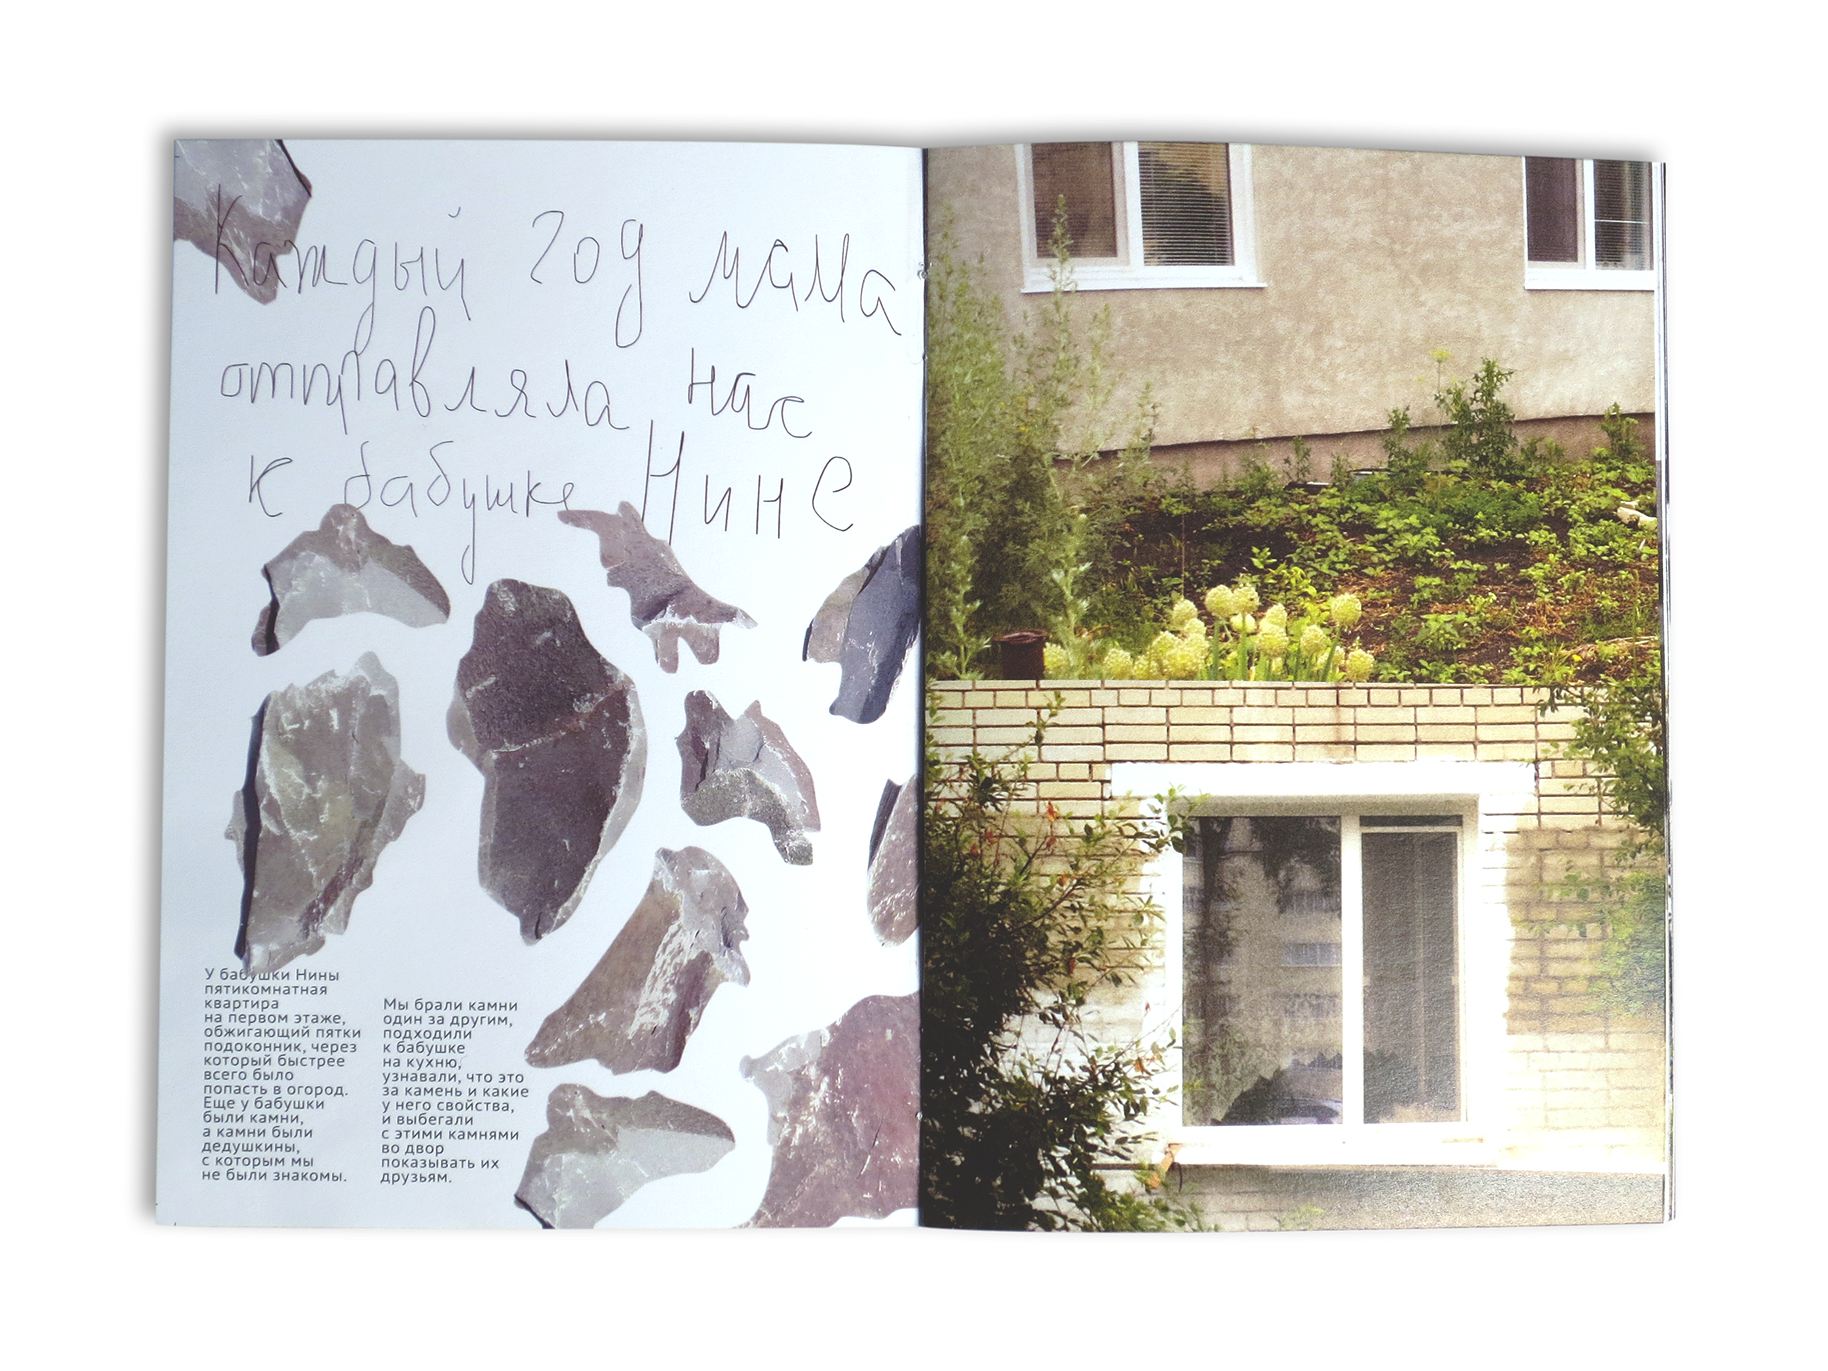 Каждый год мама
отправляла нас
к бабушке Нине
У бабушки Нины
пятикомнатная
квартира
на первом этаже,
обжигающий пятки
подоконник, через
который быстрее
всего было
попасть в огород.
Еще у бабушки
были камни,
а камни были
дедушкины,
с которым мы
не были знакомы.
Мы брали камни
один за другим,
подходили
к бабушке
на кухню,
узнавали, что это
за камень и какие
у него свойства,
и выбегали
с этими камнями
во двор
показывать их
друзьям.